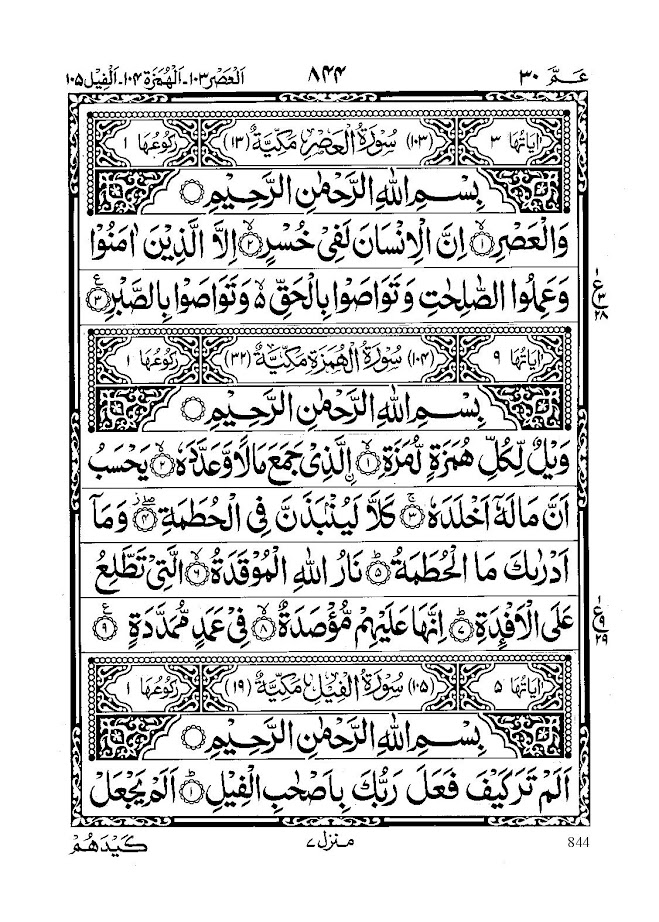 عـمّ ٣٠
٨۴۴
اَلعَصْر١٠٣۔اَلْهُمَزَة١٠۴۔اَلْفِيْل١٠۵
اٰيَاتُهَا ٣ (١٠٣) سُوْرَةُ الْعَصْرِ مَكِّيَّةٌ (١٣) رُكُوْعُهَا ١
بِسْمِ اللهِ الرَّحْمٰنِ الرَّحِيْمِ
وَالْعَصْرِ ۙ﴿١﴾ اِنَّ الْاِنْسَانَ لَفِىْ خُسْرٍ ۙ﴿٢﴾ اِلَّا الَّذِيْنَ اٰمَنُوْا
وَعَمِلُوا الصّٰلِحٰتِ وَتَوَاصَوْا بِالْحَقِّ ۙ وَتَوَاصَوْا بِالصَّبْرِ ﴿٣﴾ ع
١
ع
٣
٢٨
اٰيَاتُهَا ٩ (١٠۴) سُوْرَةُ الْهُمَزَةِ مَكِّيَّةٌ (٣٢) رُكُوْعُهَا ١
بِسْمِ اللهِ الرَّحْمٰنِ الرَّحِيْمِ
وَيْلٌ لِّكُلِّ هُمَزَةٍ لُّمَزَةِ ۙ﴿١﴾ اۨلَّذِىْ جَمَعَ مَالًا وَّعَدَّدَهٗ ۙ﴿٢﴾ يَحْسَبُ
اَنَّ مَالَهٗۤ اَخْلَدَهٗ ۚ﴿٣﴾ كَلَّا لَيُنْۢبَذَنَّ فِى الْحُطَمَةِ ۖ﴿۴﴾ وَمَاۤ
اَدْرٰىكَ مَا الْحُطَمَةُ ؕ﴿۵﴾ نَارُ اللهِ الْمُوْقَدَةُ ۙ﴿٦﴾ الَّتِىْ تَطَّلِعُ
عَلَى الْاَفْـِٕدَةِ ؕ﴿٧﴾ اِنَّهَا عَلَيْهِمْ مُّؤْصَدَةٌ ۙ﴿٨﴾ فِىْ عَمَدٍ مُّمَدَّدَةٍ ﴿٩﴾ ع
١
ع
٩
٢٩
اٰيَاتُهَا ۵ (١٠۵) سُوْرَةُ الْفِيْلِ مَكِّيَّةٌ (١٩) رُكُوْعُهَا ١
بِسْمِ اللهِ الرَّحْمٰنِ الرَّحِيْمِ
اَلَمْ تَرَ كَيْفَ فَعَلَ رَبُّكَ بِاَصْحٰبِ الْفِيْلِ ؕ﴿١﴾ اَلَمْ يَجْعَلْ
844
منزل ٧
كَيْدَهُمْ